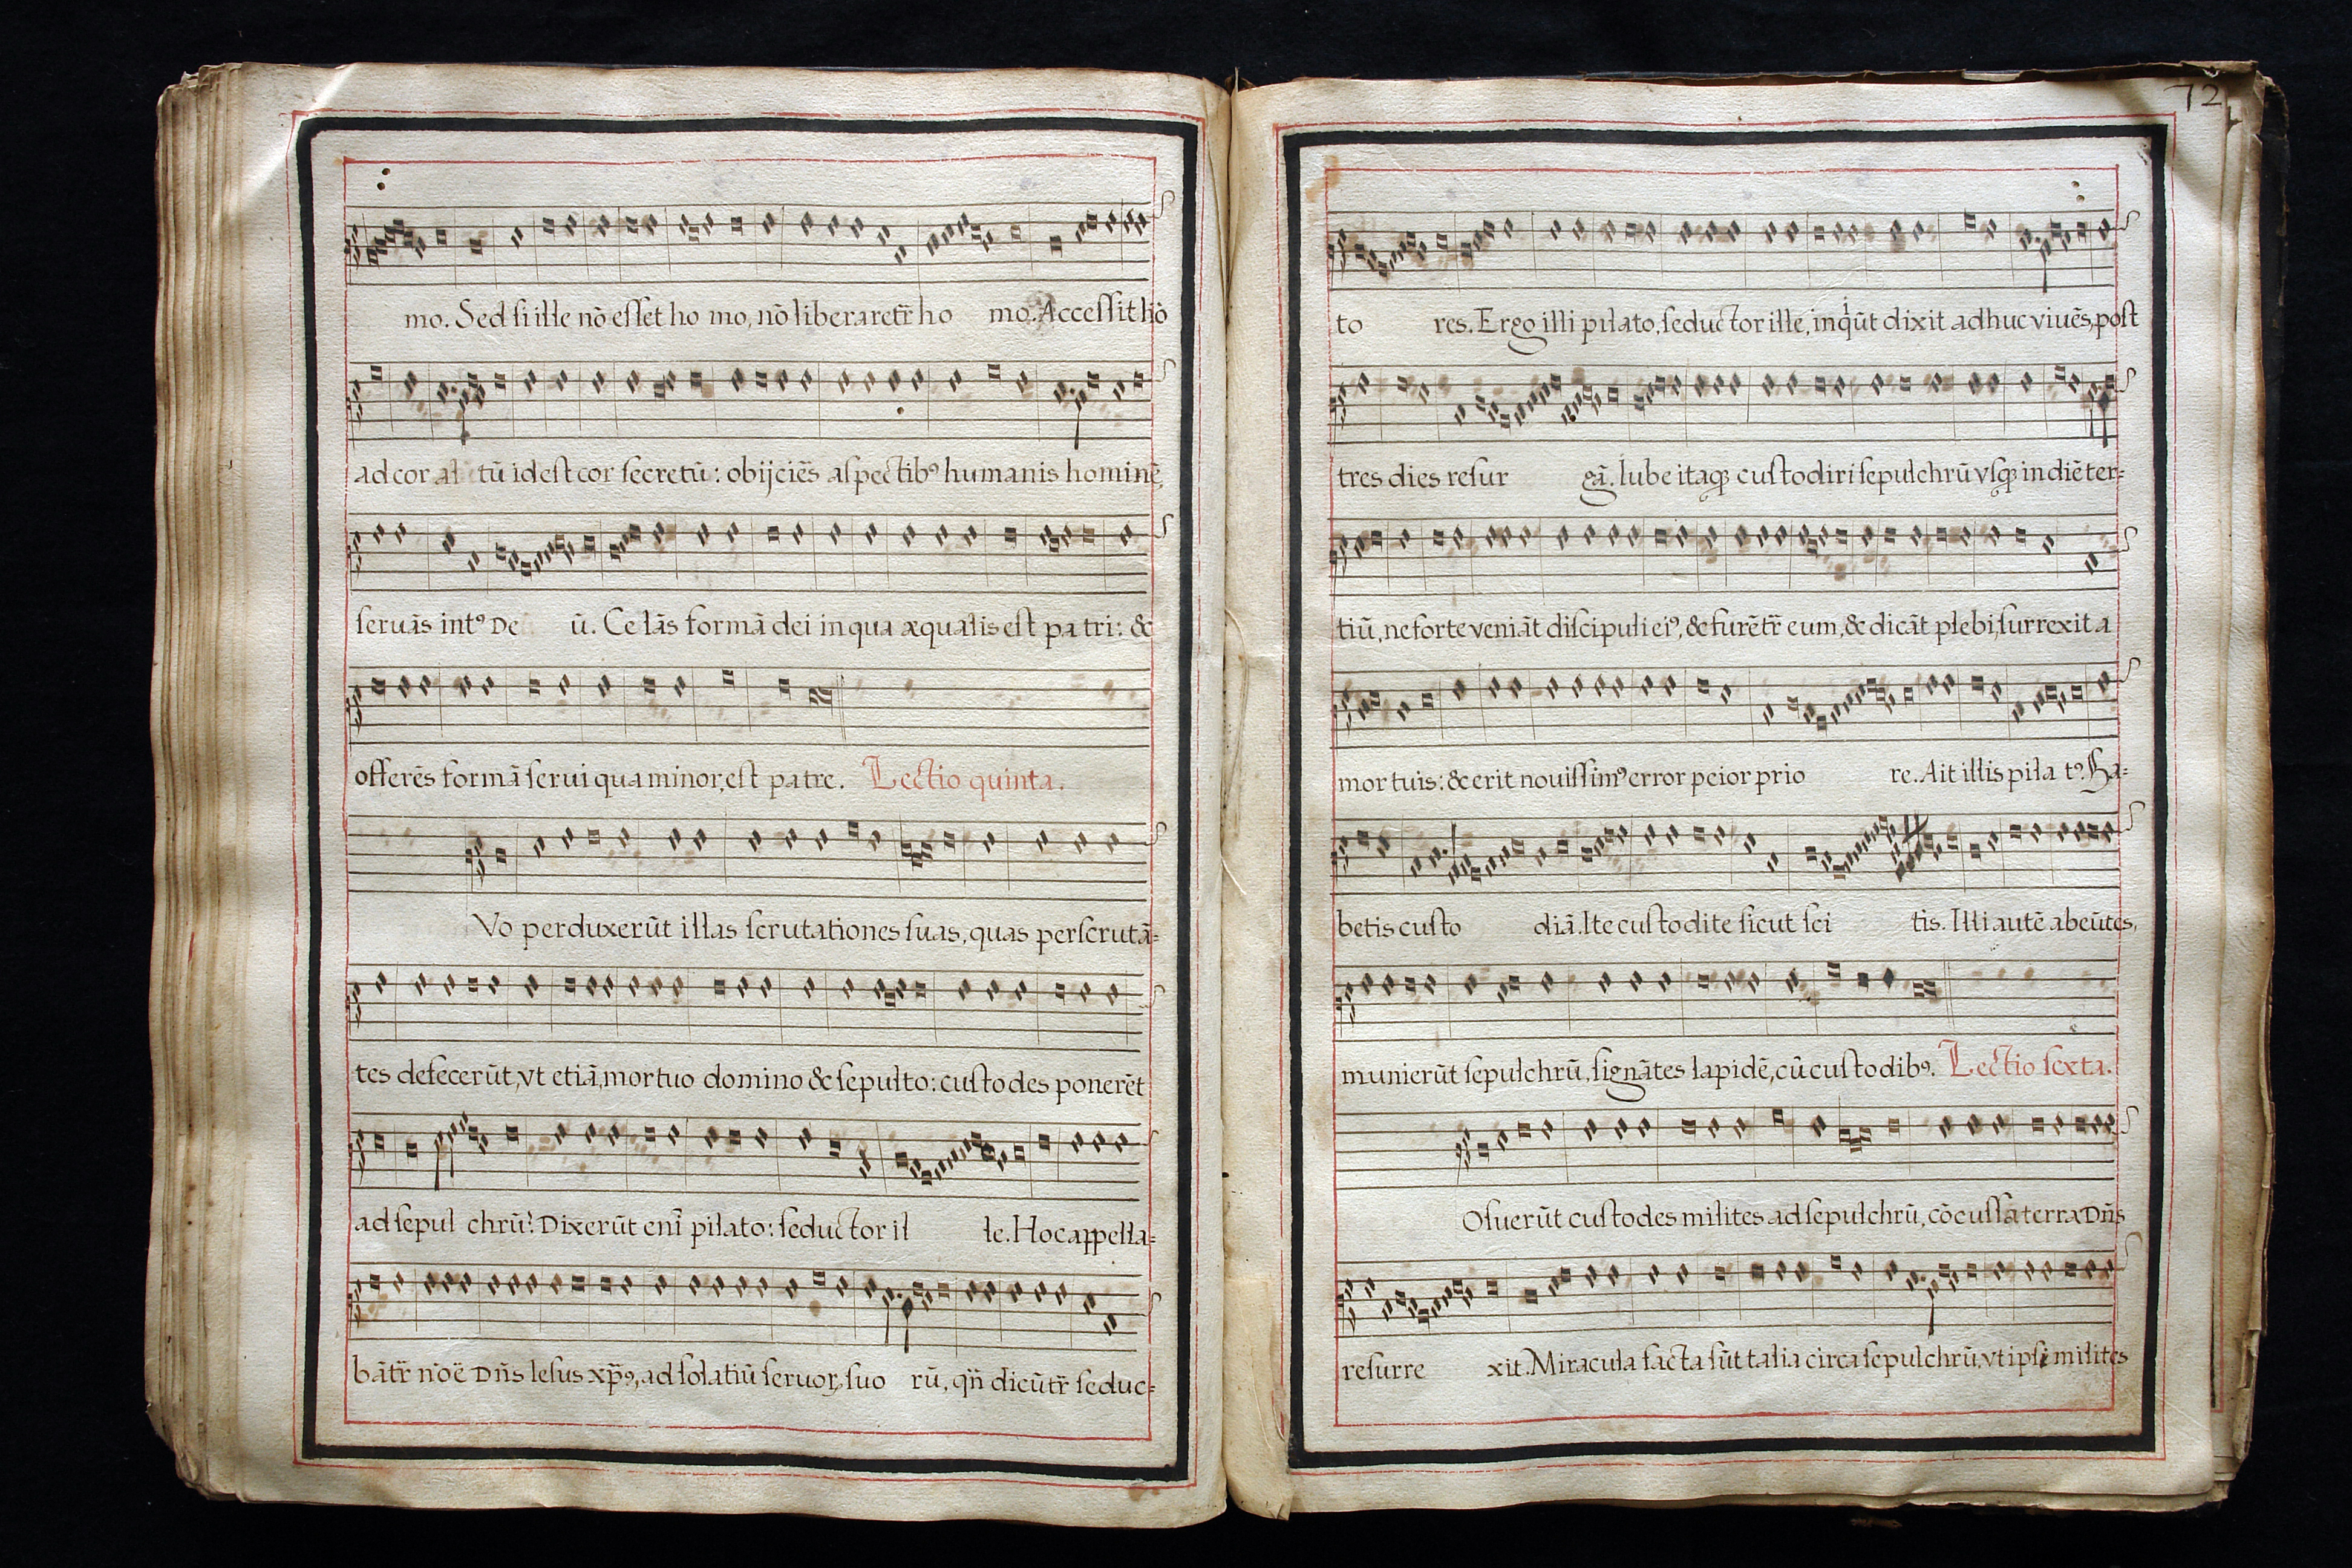 mo. Sed si ille nō esset ho mo, nō liberaretr̄ ho mo. Accessit hō
ad cor al tū id est cor secretū: obijciēs aspectibꝰ humanis hominē,
seruās intꝰ De ū. Celās formā dei in qua æqualis est pa tri: &
offerēs formā serui qua minor, est patre. Lectio quinta.
Vo perduxerūt illas scrutationes suas, quas perscrutā=
tes defecerūt, vt etiā, mortuo domino & sepulto: custodes ponerēt
ad sepul chrū? Dixerūt enī pilato: seductor il le. Hoc appella=
bātr̄ nōē Dn̄s Iesus xp̄ꝰ, ad solatiū seruoꝝ, suo rū, qn̄ dicūtr̄ seduc=
72
to res. Ergo illi pilato, seductor ille, inqͥūt dixit adhuc viuēs, post
tres dies resur gā. Iube itaqꝫ custodiri sepulchrū vsqꝫ in diē ter=
tiū, ne forte veniāt discipuli eiꝰ, & furētr̄ eum, & dicāt plebi, surrexit a
mortuis: & erit nouissimꝰ error peior prio re. Ait illis pila tꝰ. Ha=
betis custo diā. Ite custodite sicut sci tis. Illi autē abeūtes,
munierūt sepulchrū, signātes lapidē, cū custodibꝰ. Lectio sexta.
Osuerūt custodes milites ad sepulchrū, cōcussa terra Dn̄s
resurre xit. Miracula facta sūt talia circa sepulchrū, vt ipsi milites